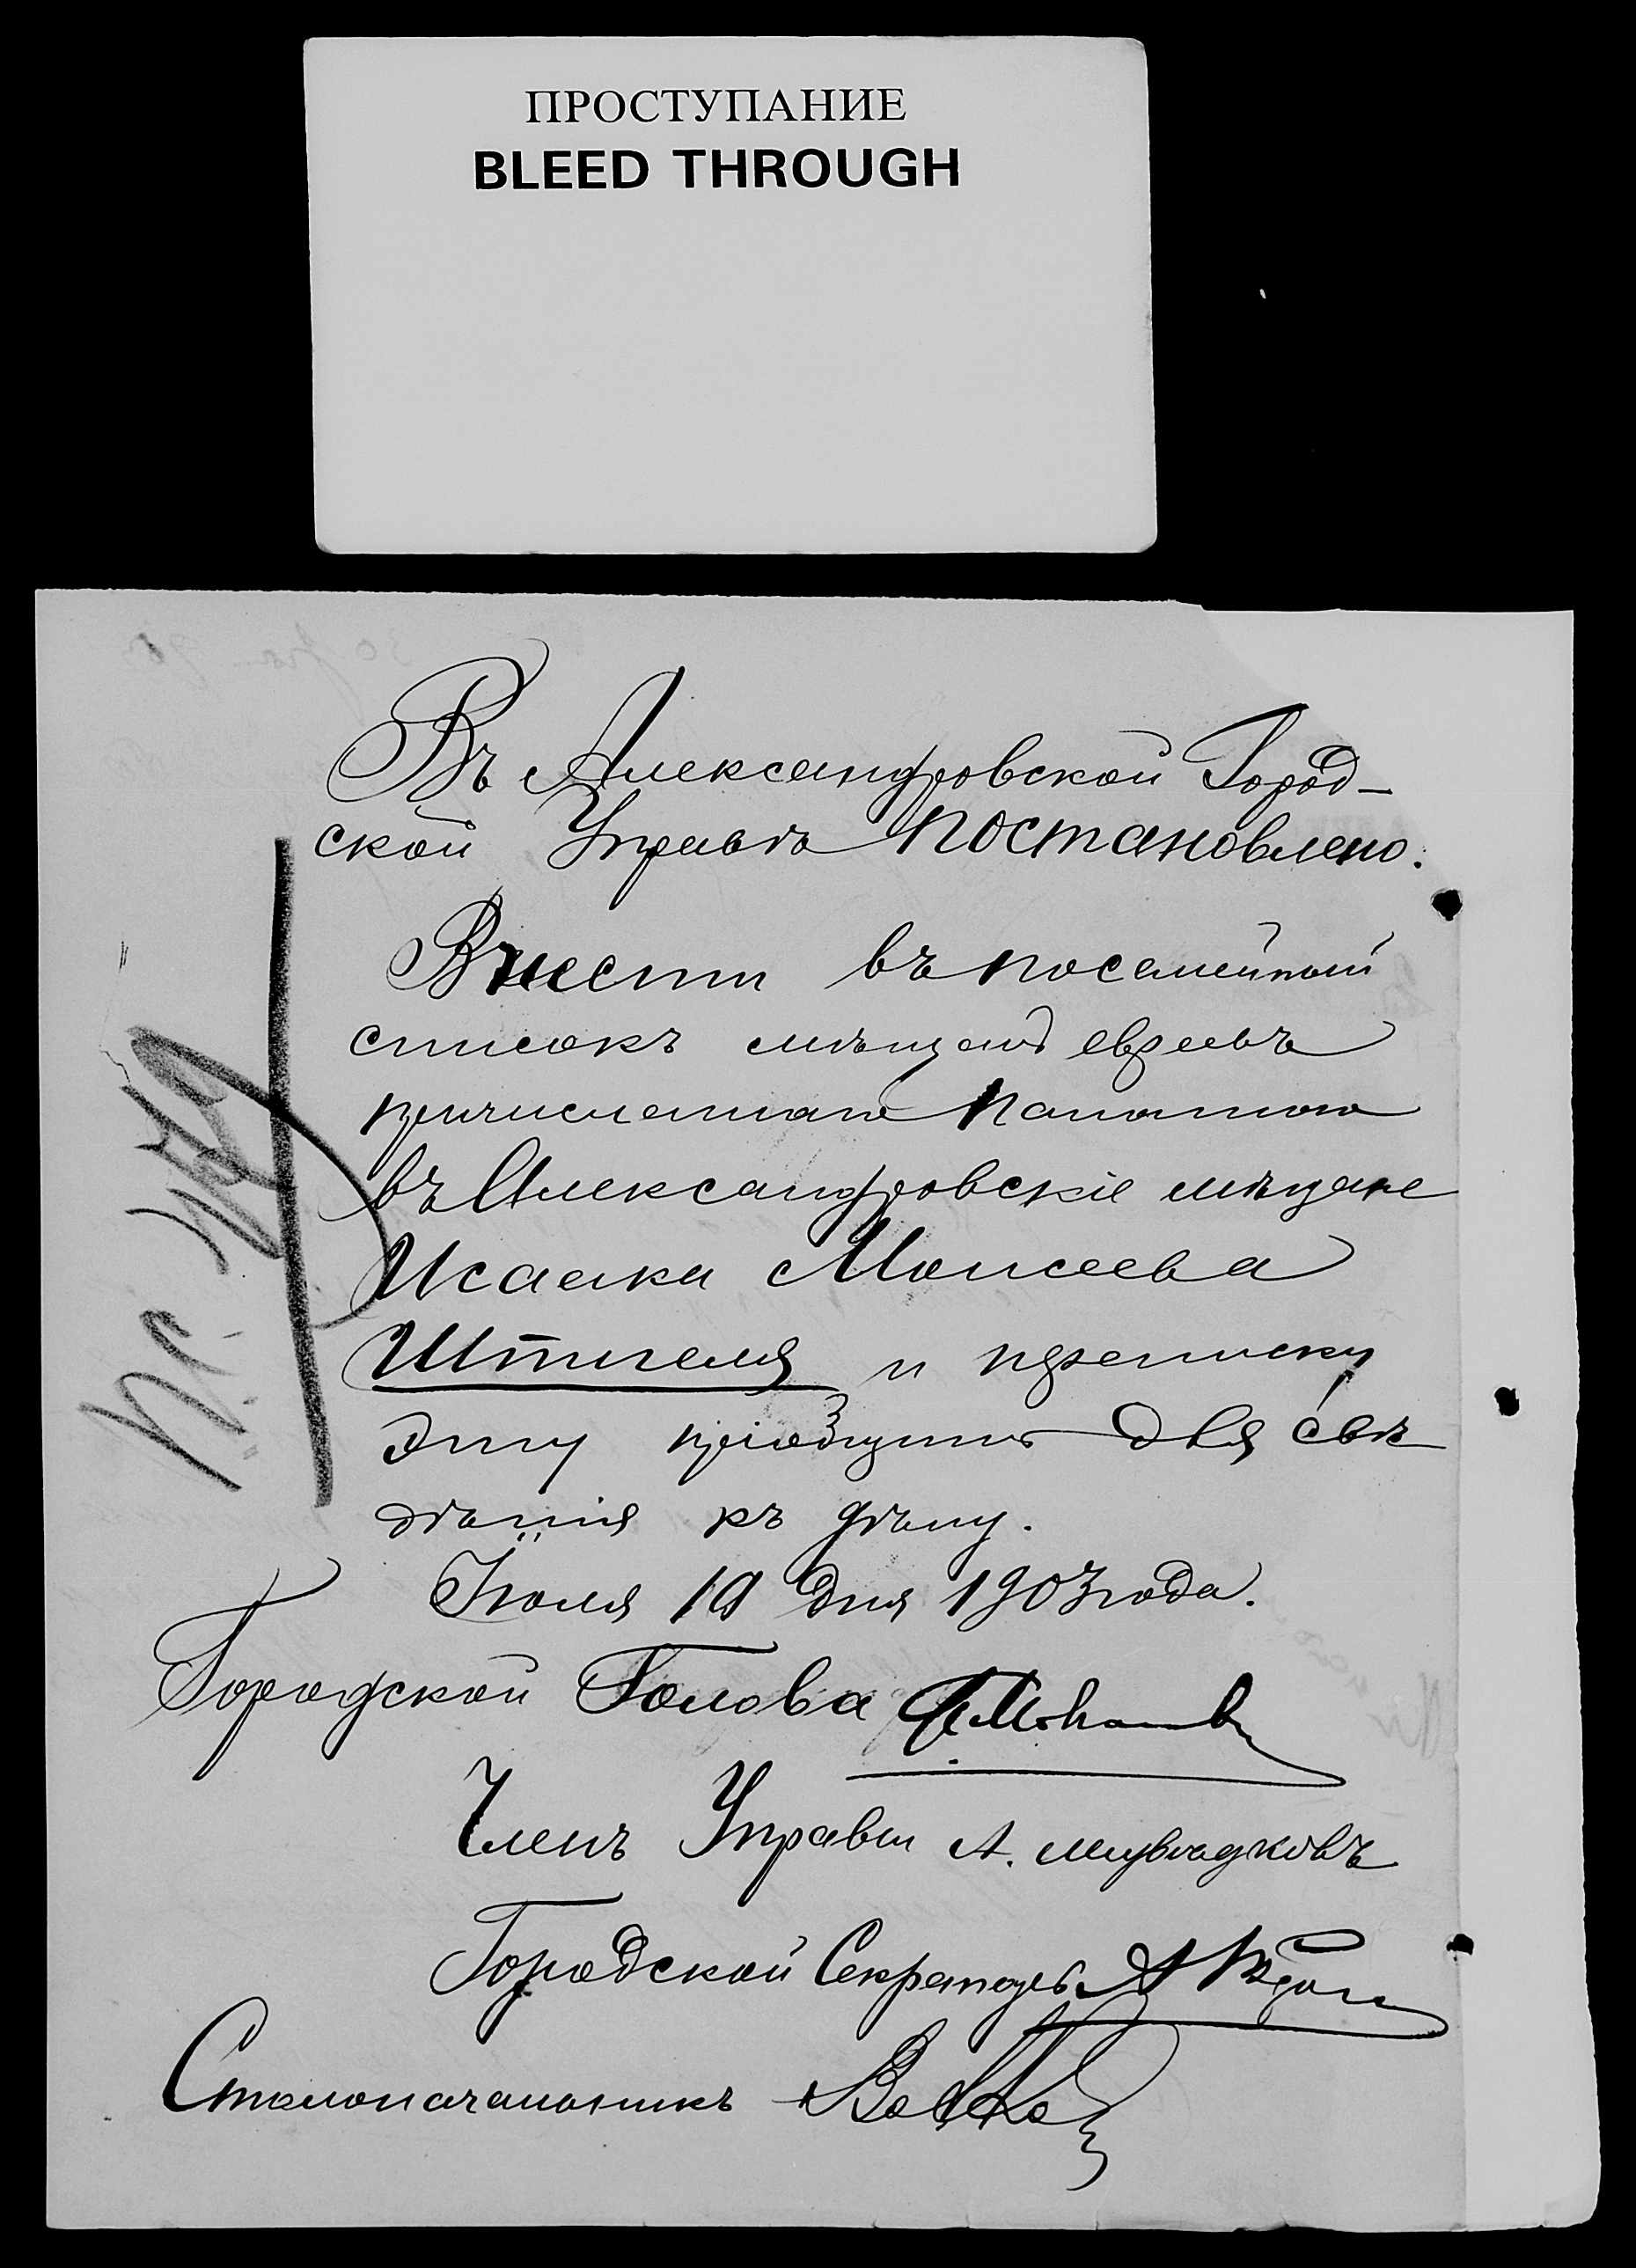 ПРОСТУПАНИЕ
BLEED THROUGH
Въ Александровской Город-
ской Управѣ постановлено:
Внести въ посемейный
списокъ мѣщанъ евреевъ
причисленнаго Палатою
въ Александровскіе мѣщане
Исаака Моисеева
Штигеля и переписку
эту пріобщить для свѣ
дѣнія къ дѣлу.
Іюля 19 дня 1903 года.
Городской Голова
Членъ Управы А.
Городской Секретарь А
Столоначальникъ